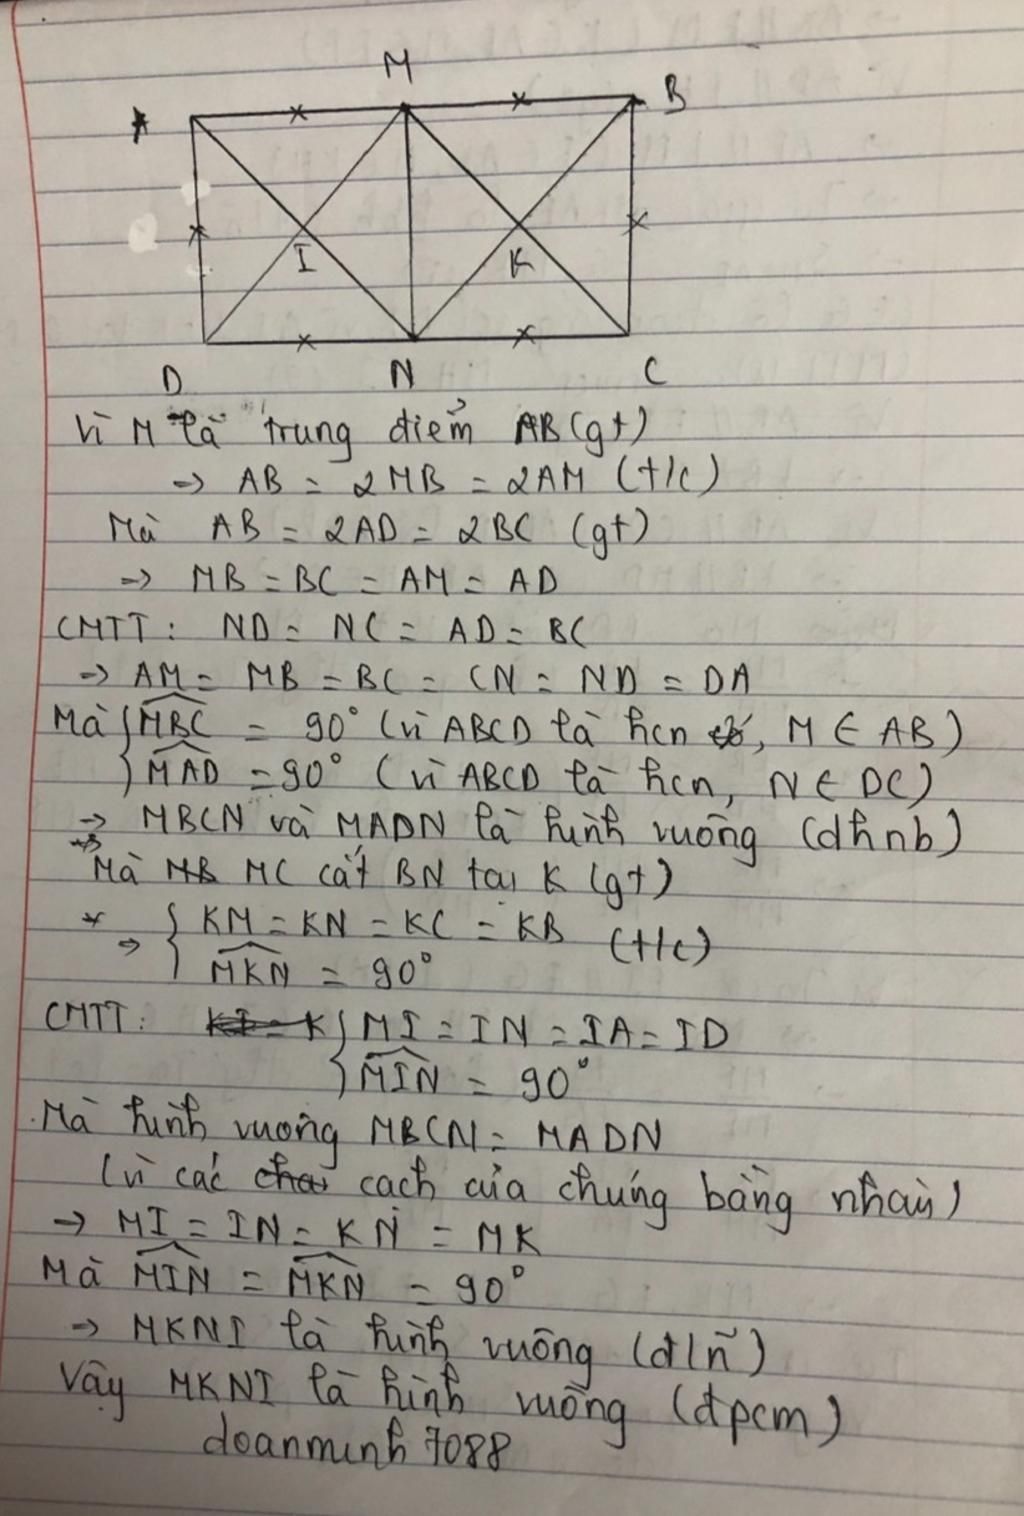 M
A
B
I
K
D
N
C
Vì M là trung điểm AB (gt)
→ AB = 2MB = 2AM (t/c)
Mà AB = 2AD = 2BC (gt)
→ MB = BC = AM = AD
CMTT: ND = NC = AD = BC
→ AM = MB = BC = CN = ND = DA
Mà { MBC = 90° (vì ABCD là hcn, M ∈ AB)
MAD = 90° (vì ABCD là hcn, N ∈ DC)
→ MBCN và MADN là hình vuông (dhnb)
Mà MC cắt BN tại K (gt)
⇒ { KM = KN = KC = KB (t/c)
MKN = 90°
CMTT: { MI = IN = IA = ID
MIN = 90°
Mà hình vuông MBCN = MADN
(vì các cạch của chúng bằng nhau)
→ MI = IN = KN = MK
Mà MIN = MKN = 90°
→ MKNI là hình vuông (đ/n)
Vậy MKNI là hình vuông (đpcm)
doanminh 7088